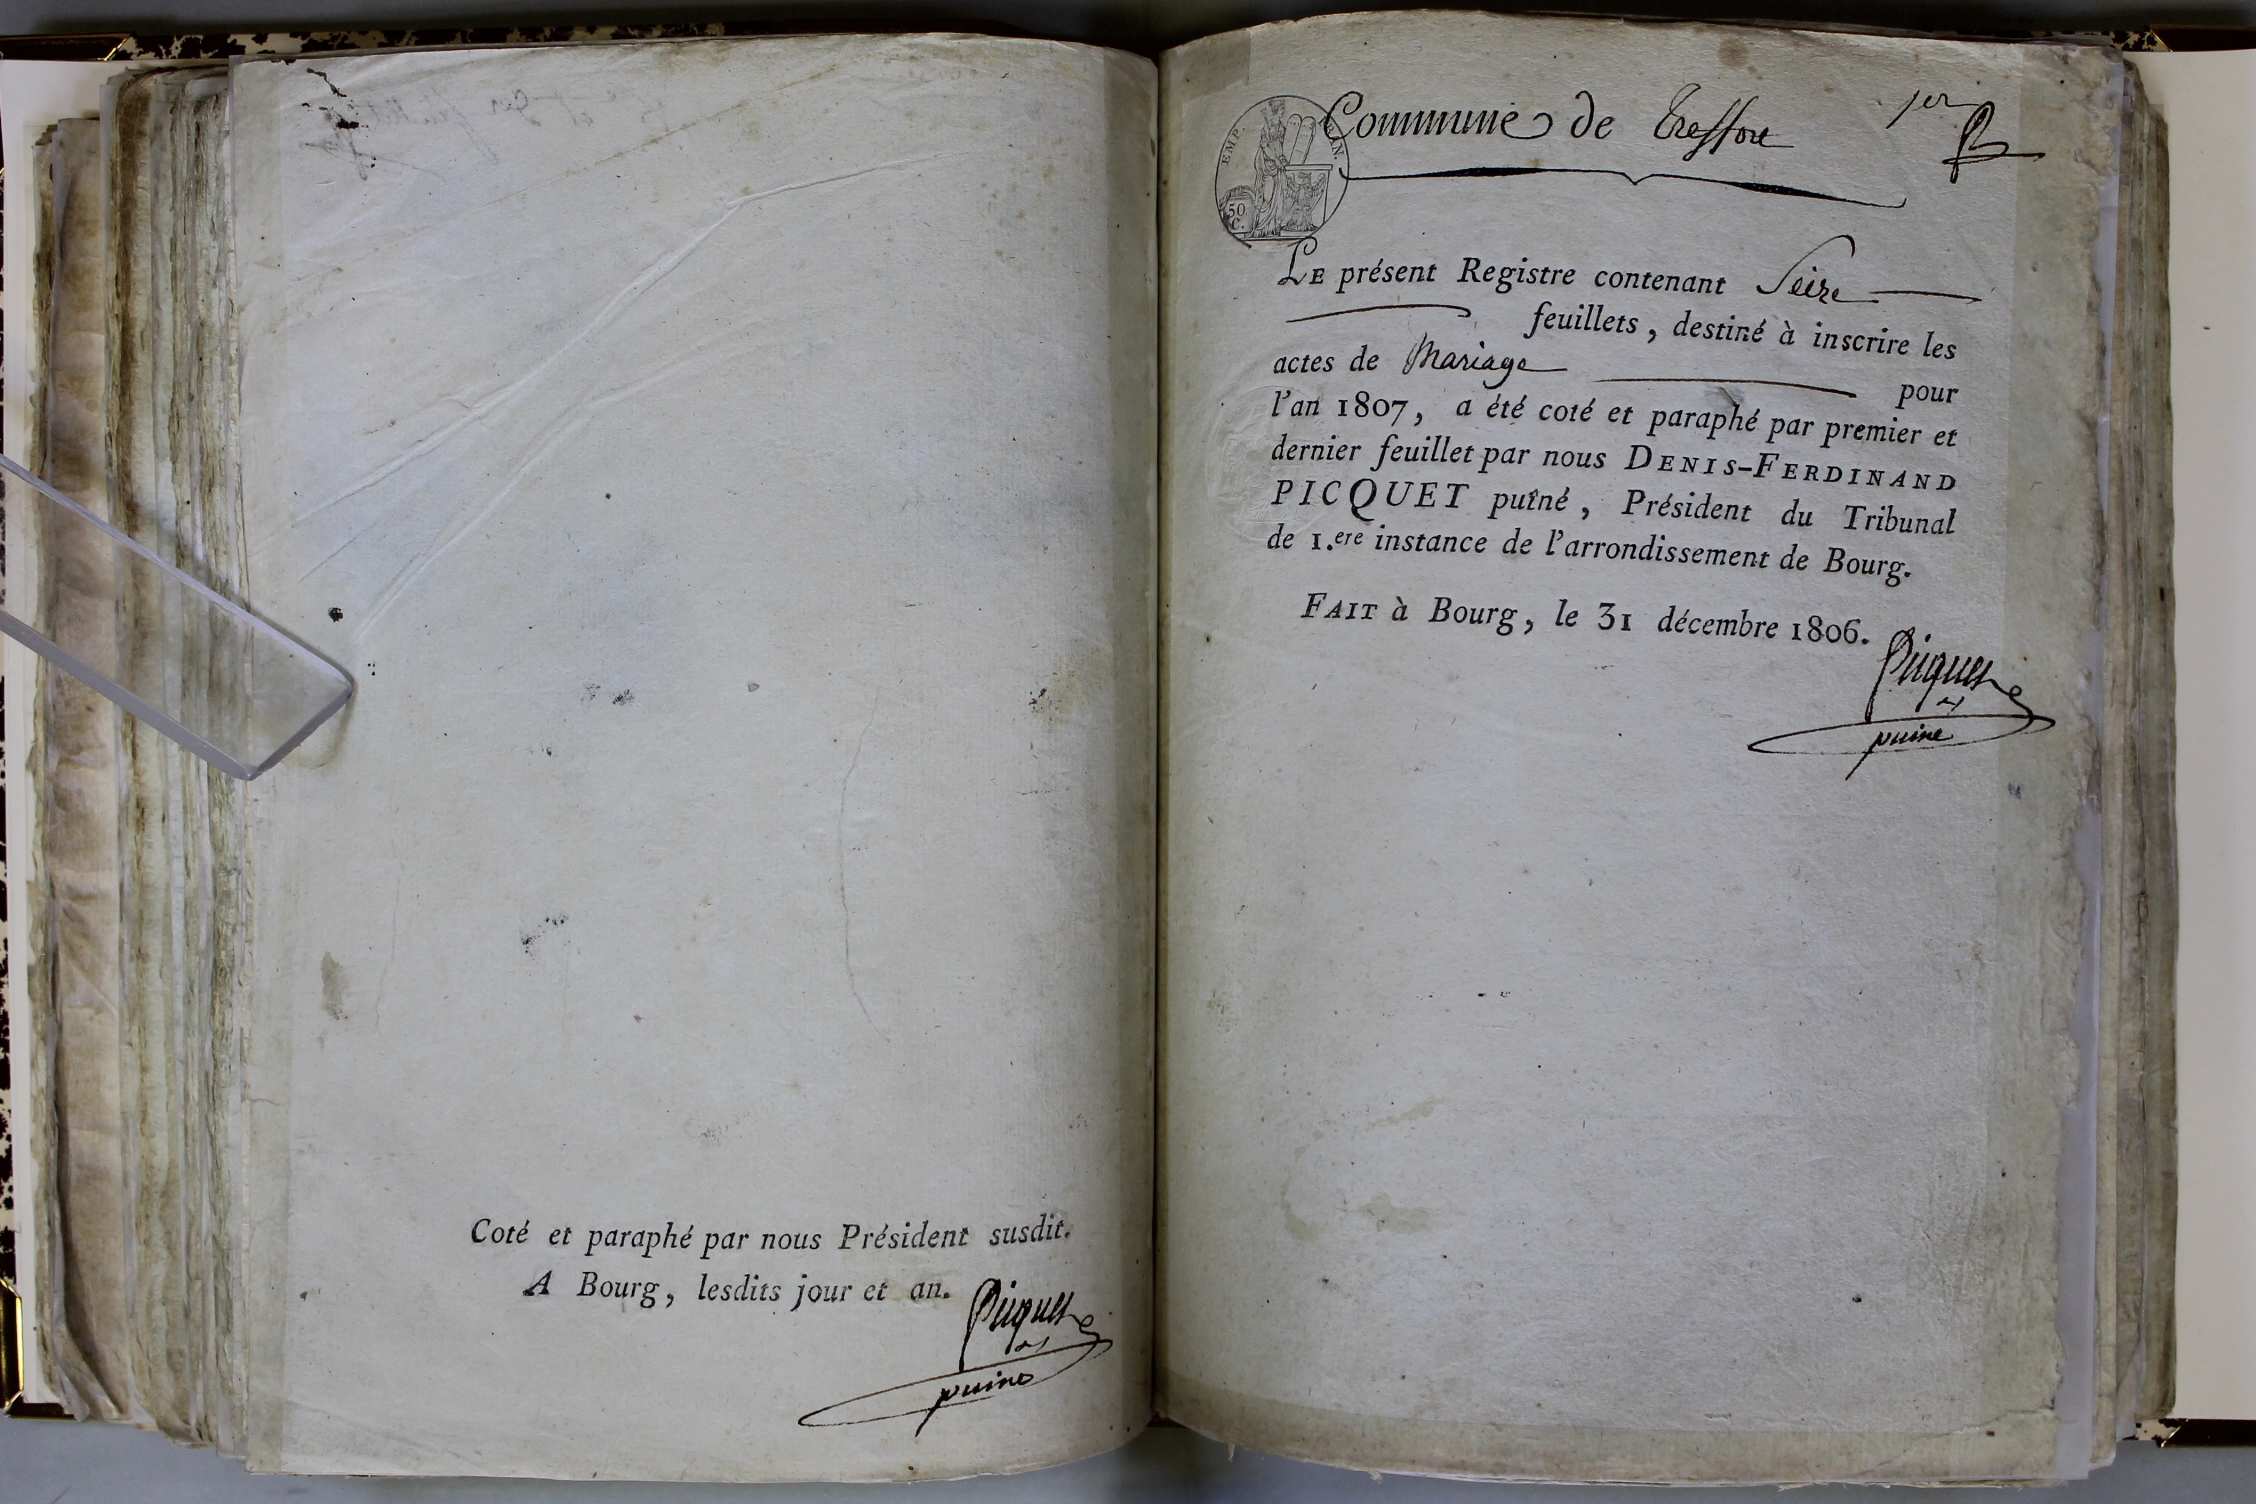 Coté et paraphé par nous Président susdit.
A Bourg, lesdits jour et an.
Picquet
puiné
Commune de Treffort
1er
EMP. FRAN.
50
C.
LE présent Registre contenant Seize
feuillets, destiné à inscrire les
actes de Mariage pour
l'an 1807, a été coté et paraphé par premier et
dernier feuillet par nous DENIS-FERDINAND
PICQUET puîné, Président du Tribunal
de 1.ere instance de l'arrondissement de Bourg.
FAIT à Bourg, le 31 décembre 1806.
Picquet
puiné